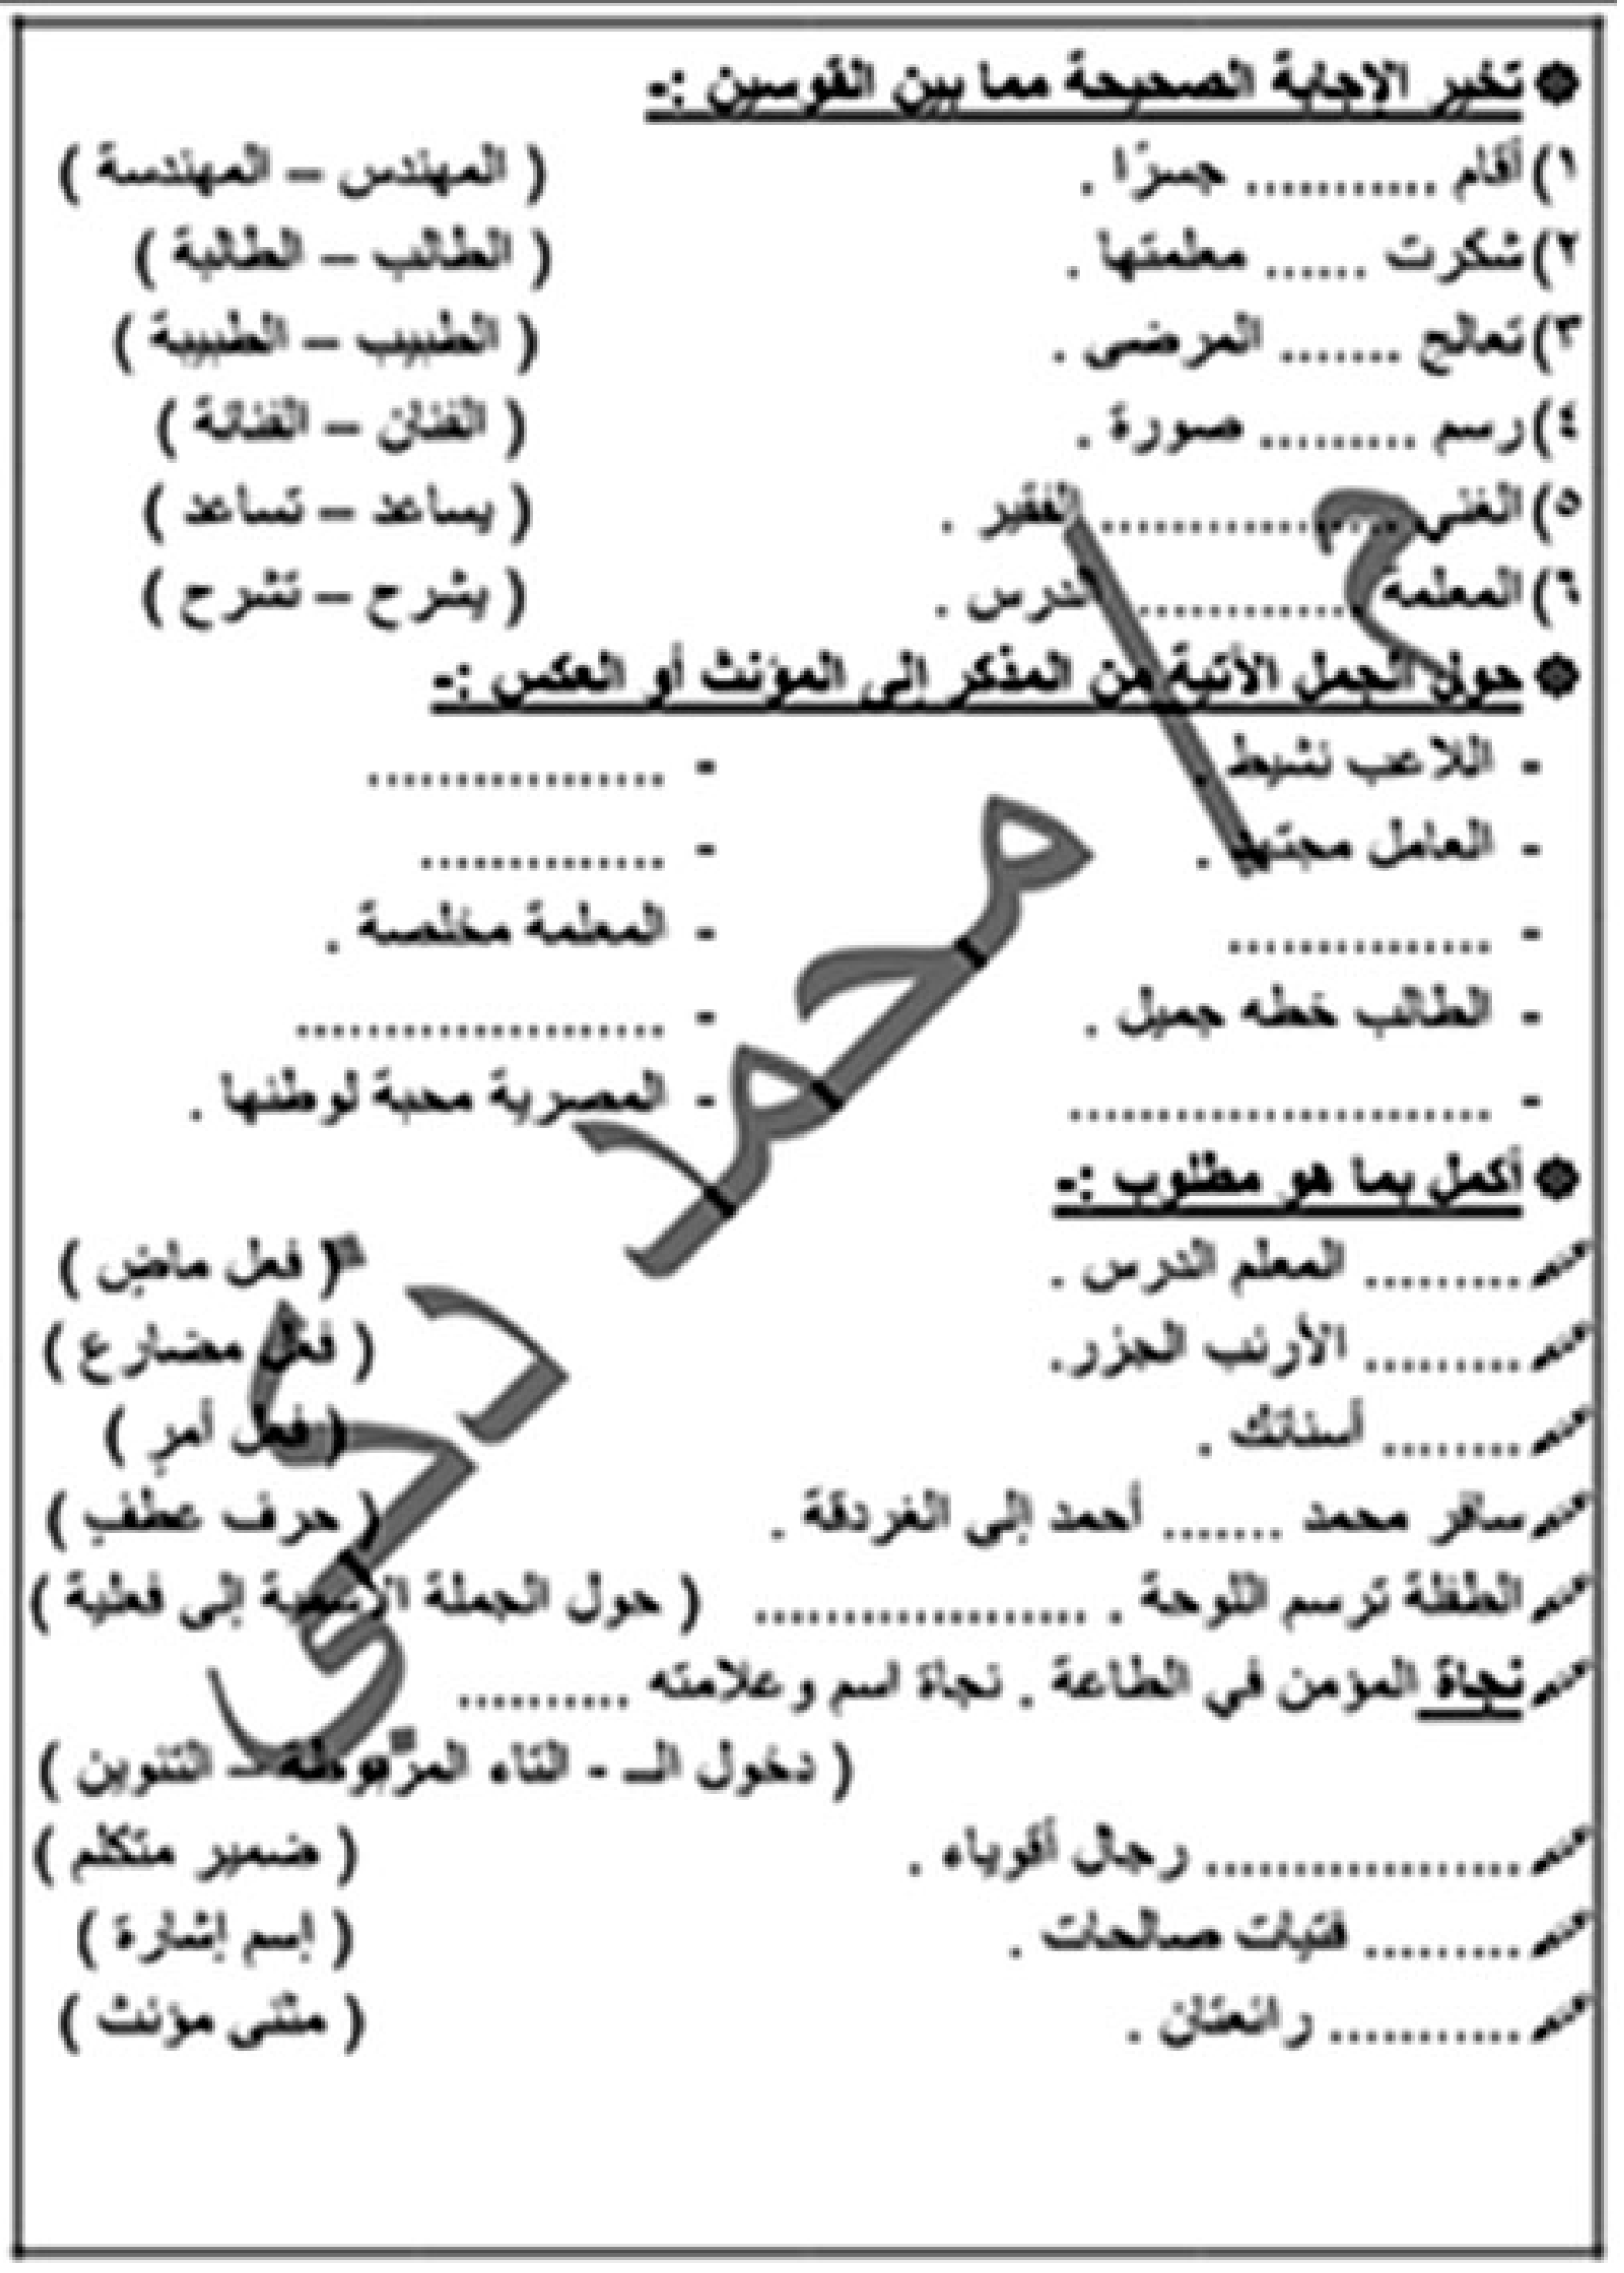 تخير الإجابة الصحيحة مما بين القوسين :-
١) أقام ........... جسرًا . ( المهندس – المهندسة )
٢) شكرت ...... معلمتها . ( الطالب – الطالبة )
٣) تعالج ....... المرضى . ( الطبيب – الطبيبة )
٤) رسم ......... صورة . ( الفنان – الفنانة )
٥) الغني ................. الفقير . ( يساعد – تساعد )
٦) المعلمة ............. الدرس . ( يشرح – تشرح )
حول الجمل الآتية من المذكر إلى المؤنث أو العكس :-
- اللاعب نشيط . - .................
- العامل مجتهد . - ..............
- ............... - المعلمة مخلصة .
- الطالب خطه جميل . - .....................
- ........................ - المصرية محبة لوطنها .
أكمل بما هو مطلوب :-
......... المعلم الدرس . ( فعل ماضٍ )
......... الأرنب الجزر. ( فعل مضارع )
........ أسنانك . ( فعل أمرٍ )
سافر محمد ....... أحمد إلى الغردقة . ( حرف عطف )
الطفلة ترسم اللوحة . ................... ( حول الجملة الاسمية إلى فعلية )
نجاة المؤمن في الطاعة . نجاة اسم وعلامته ..........
( دخول الـ - التاء المربوطة – التنوين )
.................. رجال أقوياء . ( ضمير متكلم )
......... فتيات صالحات . ( إسم إشارة )
........... رائعتان . ( مثنى مؤنث )
محمد